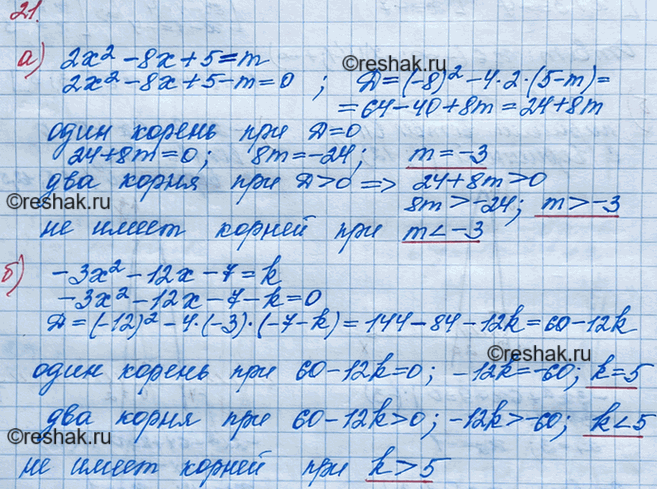 21.
©reshak.ru
а) 2x² - 8x + 5 = m
2x² - 8x + 5 - m = 0 ; D = (-8)² - 4·2·(5-m) =
= 64 - 40 + 8m = 24 + 8m
один корень при D = 0
24 + 8m = 0; 8m = -24; m = -3
два корня при D > 0 => 24 + 8m > 0
©reshak.ru
8m > -24; m > -3
не имеет корней при m < -3
б) -3x² - 12x - 7 = k
-3x² - 12x - 7 - k = 0
D = (-12)² - 4·(-3)·(-7-k) = 144 - 84 - 12k = 60 - 12k
©reshak.ru
один корень при 60 - 12k = 0; -12k = -60; k = 5
два корня при 60 - 12k > 0; -12k > -60; k < 5
©reshak.ru
не имеет корней при k > 5